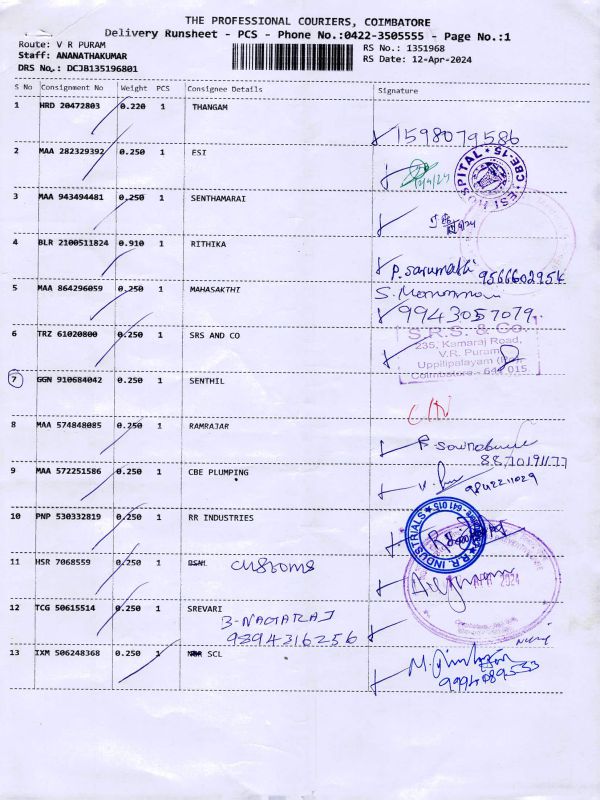 THE PROFESSIONAL COURIERS, COIMBATORE
Delivery Runsheet - PCS - Phone No.:0422-3505555 - Page No.:1
Route: V R PURAM
RS No.: 1351968
Staff: ANANATHAKUMAR
RS Date: 12-Apr-2024
DRS No.: DCJB135196801
S No Consignment No Weight PCS Consignee Details Signature
1 HRD 20472803 0.220 1 THANGAM
1598079586
2 MAA 282329392 0.250 1 ESI
ESI HOSPITAL * CBE-15 *
3 MAA 943494481 0.250 1 SENTHAMARAI
4 BLR 2100511824 0.910 1 RITHIKA
P. Sarumathi 9566602954
5 MAA 864296059 0.250 1 MAHASAKTHI
S.
9943057079
6 TRZ 61020800 0.250 1 SRS AND CO
S.R.S. & Co.
235, Kamaraj Road,
V.R. Puram
Uppilipalayam (Po),
Coimbatore - 641 015.
7 GGN 910684042 0.250 1 SENTHIL
8 MAA 574848085 0.250 1 RAMRAJAR
8870191177
9 MAA 572251586 0.250 1 CBE PLUMPING
9842211029
10 PNP 530332819 0.250 1 RR INDUSTRIES
R.R. INDUSTRIALS * 641 015 *
11 HSR 7068559 0.250 1 BSNL customs
2024
12 TCG 50615514 0.250 1 SREVARI
B-NAGARAJ
9894316256
13 IXM 506248368 0.250 1 SCL
9994089533